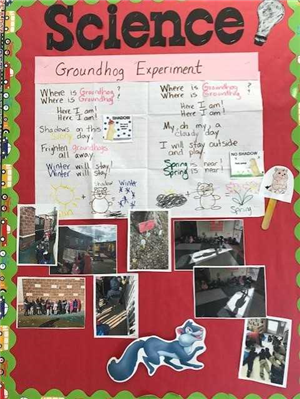 Science
Groundhog Experiment
Where is Groundhog?
Where is Groundhog
Here I am!
Here I am!
Shadows on this
sunny day
Frighten groundhogs
all away.
Winter will stay!
Winter will stay.
SHADOW
Winter
Where is Groundhog?
Where is Groundhog
Here I am!
Here I am!
My oh my, a
cloudy day
I will stay outside
and play.
Spring is near!
Spring is near.
NO SHADOW
Spring